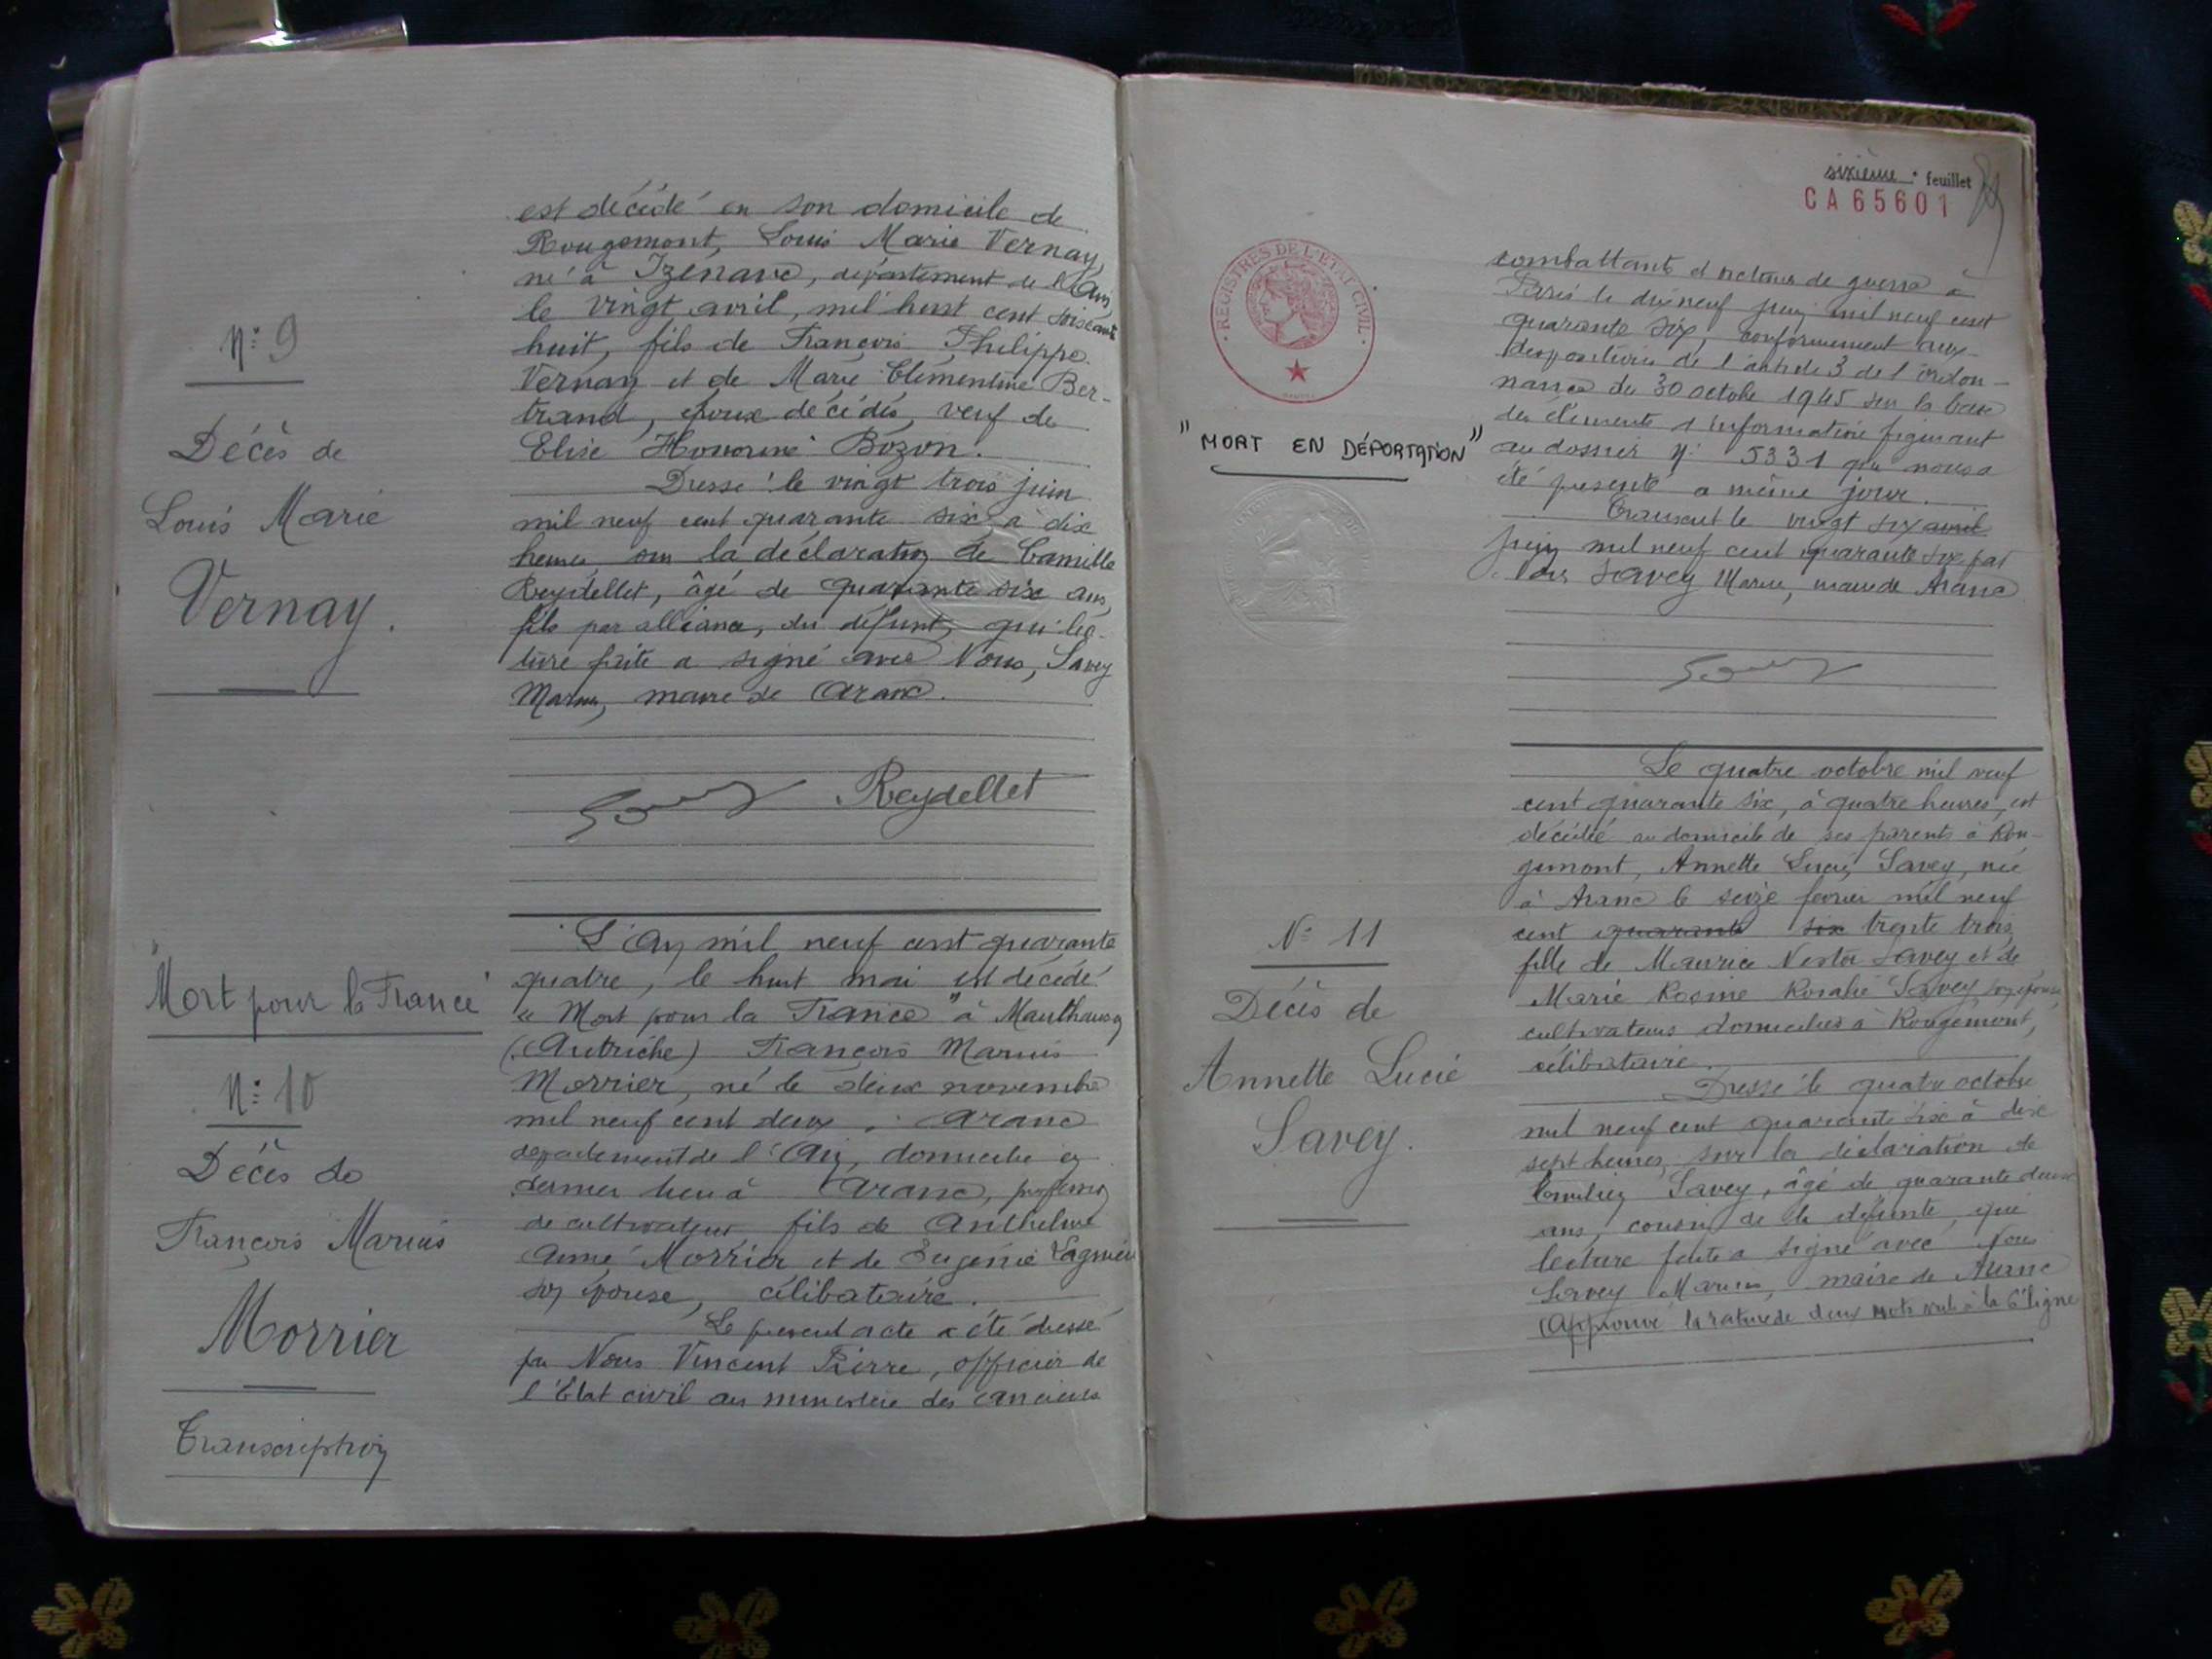 est décédé en son domicile de
Rougemont, Louis Marie Vernay,
né à Izenave, département de l'Ain,
le vingt avril, mil huit cent soixante
huit, fils de François Philippe
Vernay et de Marie Clémentine Ber-
trand, époux décédés, veuf de
Elise Honorine Bozon.
Dressé le vingt trois juin
mil neuf cent quarante six à dix
heures, sur la déclaration de Camille
Reydellet, âgé de quarante six ans,
fils par alliance, du défunt, qui lec-
ture faite a signé avec Nous, Savey
Marius, maire de Aranc.
Reydellet
N° 9
Décès de
Louis Marie
Vernay.
L'An mil neuf cent quarante
quatre, le huit mai est décédé
"Mort pour la France" à Mauthausen
(Autriche) François Marius
Morrier, né le deux novembre
mil neuf cent deux à Aranc
département de l'Ain, domicilié en
dernier lieu à Aranc, profession
de cultivateur, fils de Anthelme
Aimé Morrier et de Eugénie Lagnieu
son épouse, célibataire.
Le présent acte a été dressé
par Nous Vincent Pierre, officier de
l'Etat civil au ministère des anciens
"Mort pour la France"
N° 10
Décès de
François Marius
Morrier
Transcription
sixième feuillet
CA 65601
REGISTRES DE L'ETAT CIVIL
"MORT EN DÉPORTATION"
combattants et victimes de guerre à
Paris le dix neuf juin mil neuf cent
quarante six, conformément aux
dispositions de l'article 3 de l'ordon-
nance du 30 octobre 1945 sur la base
des éléments d'information figurant
au dossier N° 5331 qui nous a
été présenté a même jour.
Transcrit le vingt six avril
juin mil neuf cent quarante six par
Nous Savey Marius, maire de Aranc
Le quatre octobre mil neuf
cent quarante six, à quatre heures, est
décédée au domicile de ses parents à Rou-
gemont, Annette Lucie Savey, née
à Aranc le seize février mil neuf
cent quarante six trente trois
fille de Maurice Nestor Savey et de
Marie Rosine Rosalie Savey, son épouse,
cultivateurs domiciliés à Rougemont,
célibataire.
Dressé le quatre octobre
mil neuf cent quarante six à dix
sept heures, sur la déclaration de
Savey, âgé de quarante deux
ans, cousin de la défunte, qui
lecture faite a signé avec Nous
Savey Marius, maire de Aranc
(Approuvé la rature de deux mots nuls à la 6e ligne
N° 11
Décès de
Annette Lucie
Savey.